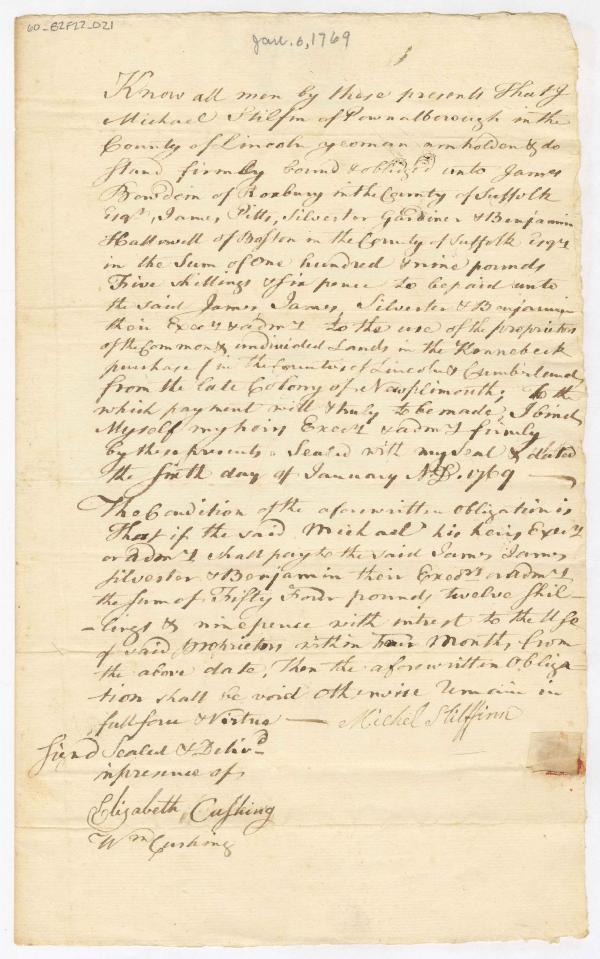 60_B2F22_021
Jan. 6, 1769
Know all men by these presents That I
Michael Stilfin of Pownalborough in the
County of Lincoln yeoman am holden & do
stand firmly bound & obliged unto James
Bowdoin of Roxbury in the County of Suffolk
Esqr, James Pitts, Silvester Gardiner & Benjamin
Hallowell of Boston in the County of Suffolk Esqrs
in the Sum of One hundred & nine pounds
Five shillings & six pence to be paid unto
the said James James, Silvester & Benjamin
their Execrs & admrs to the use of the proprietors
of the Common & undivided Lands in the Kennebeck
purchase (in the Counties of Lincoln & Cumberland)
from the late Colony of New plimouth; to the
which payment well & truly to be made, I bind
Myself my heirs Execrs & admrs firmly
by these presents. Sealed with my Seal & dated
the Sixth day of January AD. 1769 —
The Condition of the aforewritten Obligation is
That if the said Michael his heirs Execrs
or admrs shall pay to the said James James
Silvester & Benjamin their Execrs or admrs
the sum of Fifty Four pounds twelve Shil-
-lings & nine pence with intrest to the Use
of said proprietors within four Months, from
the above date, then the aforewritten Obliga-
tion shall be void otherwise remain in
full force & Virtue — Michel Stilffinn
Signd Sealed & Delivd
in presence of
Elizabeth Cushing
Wm Cushing